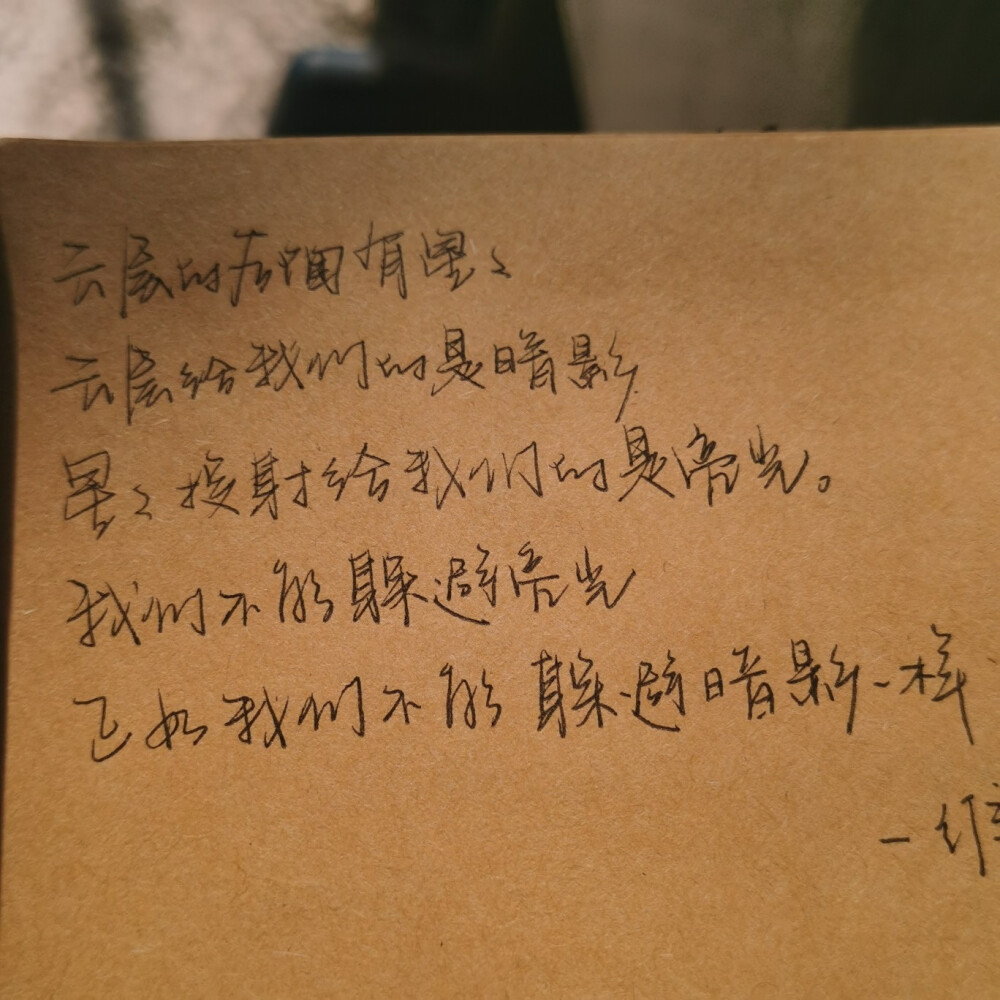 云层的有星〻
云层给我们的是暗影
星〻投射给我们的是亮光。
我们不能躲避亮光
正如我们不能躲避暗影一样
— 维